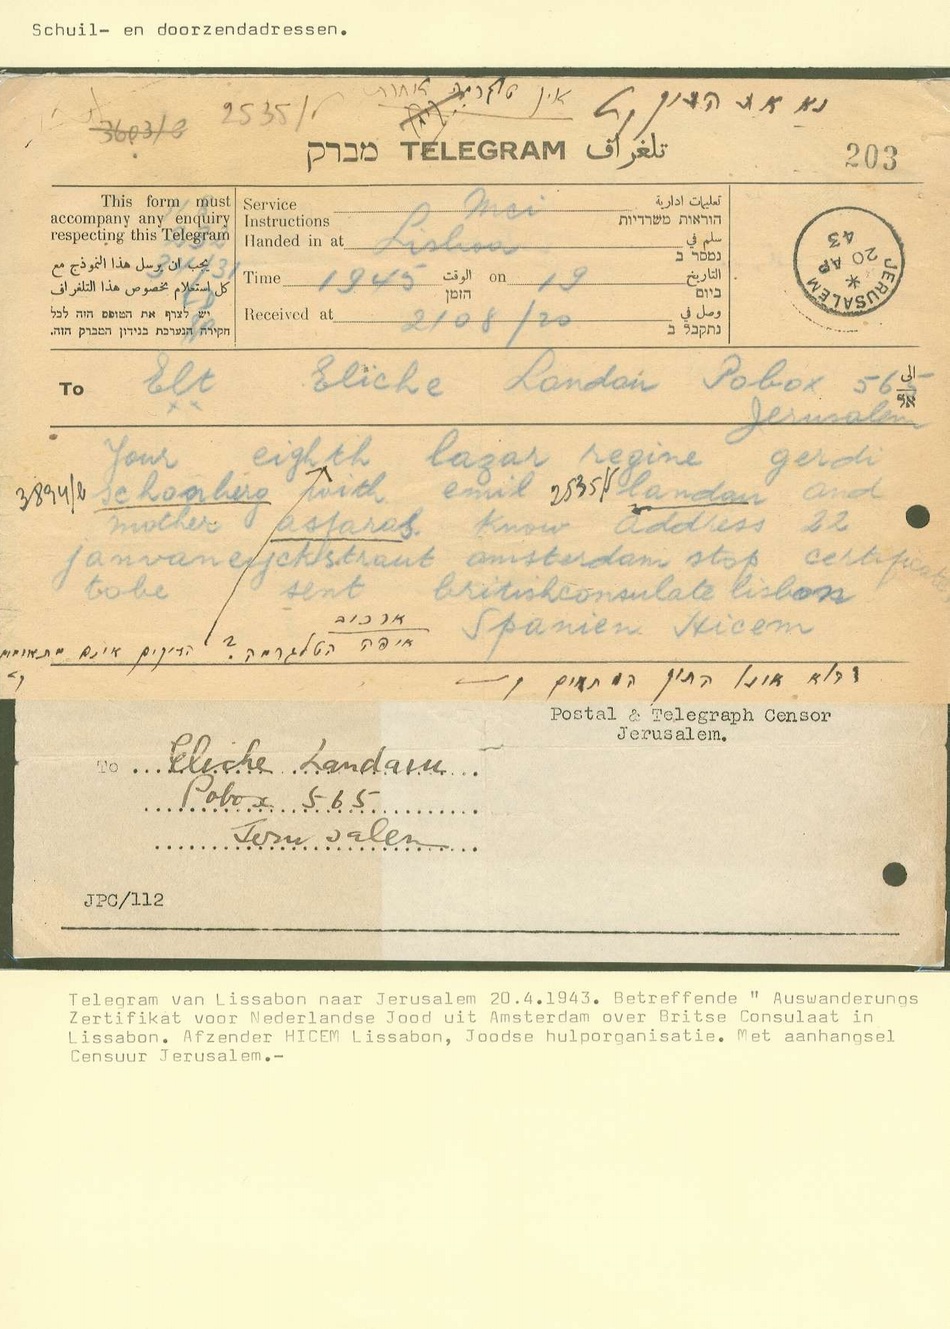 Schuil- en doorzendadressen.
3603/8 2535/ אין אחרות נא את התיק
מברק TELEGRAM تلغراف
203
This form must
accompany any enquiry
respecting this Telegram
يجب ان يرسل هذا النموذج مع
كل استعلام بخصوص هذا التلغراف
יש לצרף את הטופס הזה לכל
חקירה הנערכת בנידון המברק הזה.
Service
Instructions
Mci
تعليمات ادارية
הוראות משרדיות
Handed in at Lisboa سلم في
נמסר ב
Time 1945 الوقت on 19 التاريخ
הזמן ביום
Received at 2108/20 وصل في
נתקבל ב
JERUSALEM
20 AP
43
To Elt Eliche Landau Pobox 565 الى
אל
Jerusalem
Your eighth lazar regine gerdi
3894/8 schonberg with emil 2535/ landau and
mother asfaras know address 22
janvaneyckstraut amsterdam stop certificate
tobe sent britishconsulate lisbon
Spanien Hicem
ארכיב
איפה הטלגרמה? התיקים אינם מתאימים
התיק המתאים
Postal & Telegraph Censor
Jerusalem.
To ... Eliche Landau ...
Pobox 565
Jerusalem
JPC/112
Telegram van Lissabon naar Jerusalem 20.4.1943. Betreffende " Auswanderungs
Zertifikat voor Nederlandse Jood uit Amsterdam over Britse Consulaat in
Lissabon. Afzender HICEM Lissabon, Joodse hulporganisatie. Met aanhangsel
Censuur Jerusalem.-